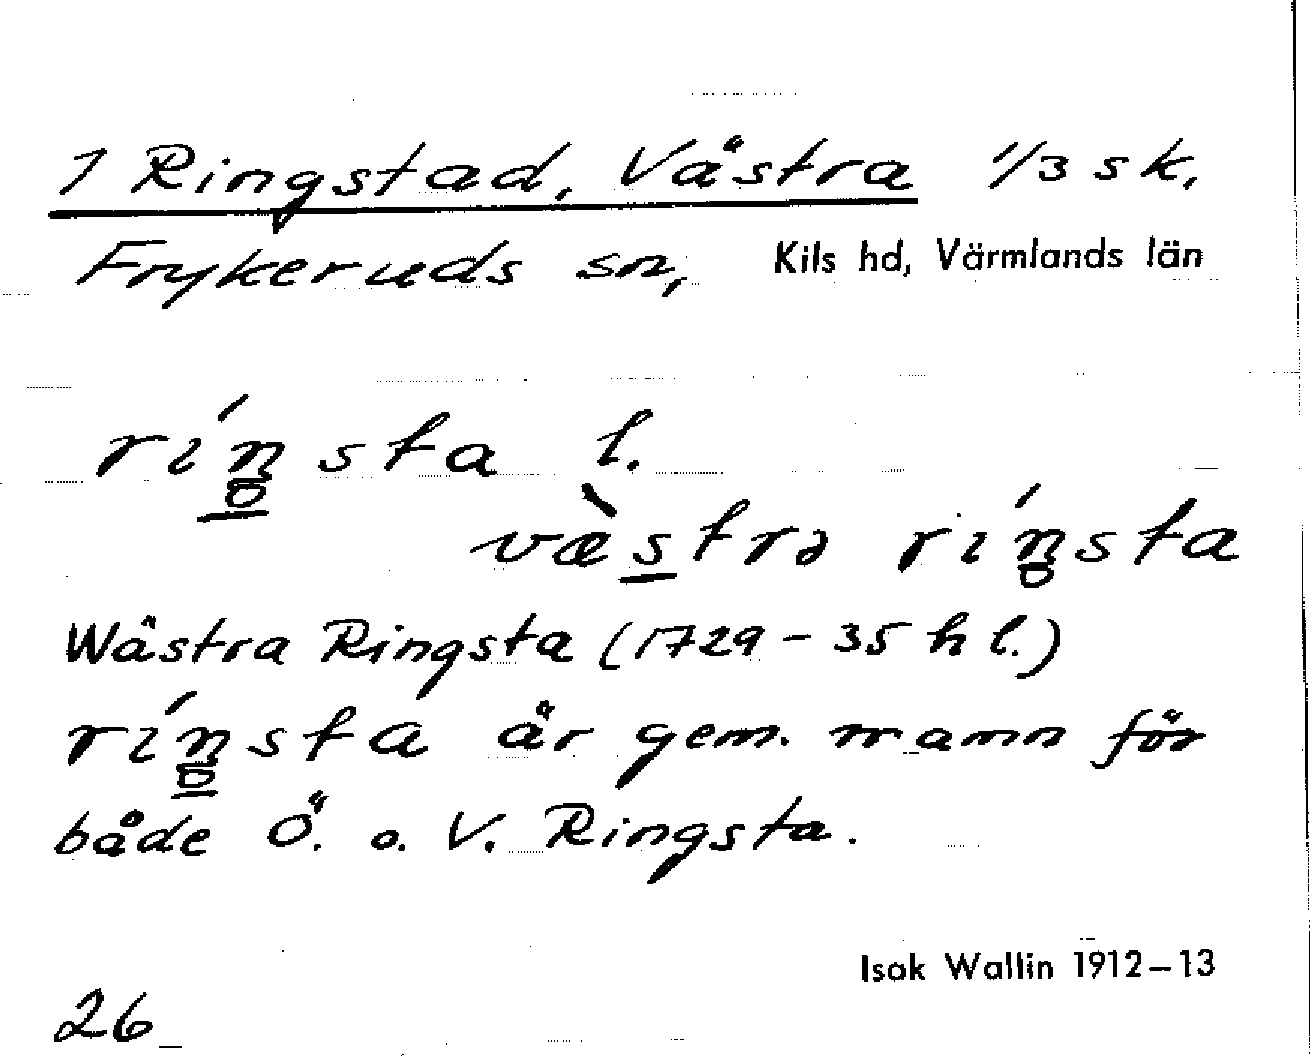 1 Ringstad, Västra 1/3 sk,
Frykeruds sn, Kils hd, Värmlands län
rín̥sta l.
væ̀strə rín̥sta
Wästra Ringsta (1729-35 h l.)
rín̥sta är gem. namn för
både Ö. o. V. Ringsta.
Isak Wallin 1912–13
26